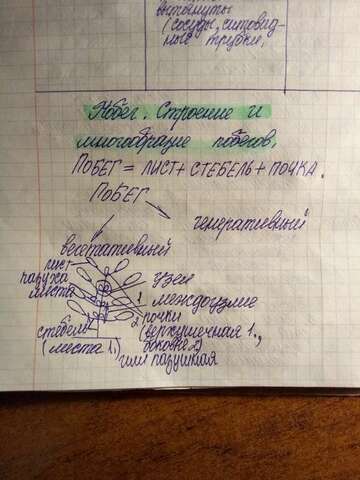 вытянуты
(сосуды, ситовид-
ные трубки.
Побег. Строение и
многобразие побегов.
ПОБЕГ = ЛИСТ + СТЕБЕЛЬ + ПОЧКА.
ПОБЕГ
генеративный
вегетативный
лист
пазуха
листа
узел
1 междоузлие
2 почки
стебель
(верхушечная 1.,
боковая 2)
(листа 1.)
или пазушная